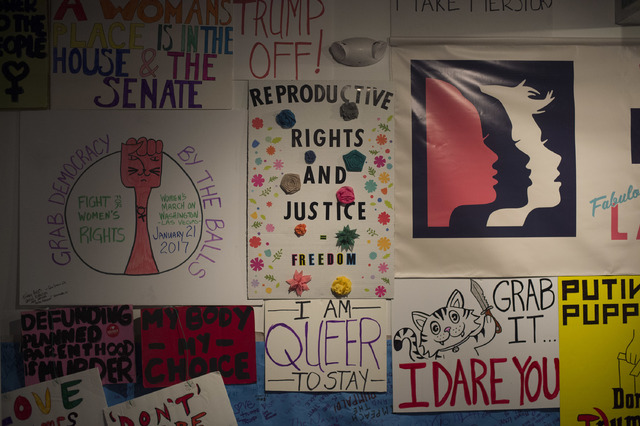 TO THE
PEOPLE
A WOMANS
PLACE IS IN THE
HOUSE & THE
SENATE
TRUMP
OFF!
GRAB DEMOCRACY
BY THE BALLS
FIGHT FOR
WOMEN'S
RIGHTS
WOMEN'S
MARCH ON
WASHINGTON
LAS VEGAS
JANUARY 21
2017
REPRODUCTIVE
RIGHTS
AND
JUSTICE
=
FREEDOM
Fabulous
LA
DEFUNDING
PLANNED
PARENTHOOD
IS
MURDER
MY BODY
- MY -
CHOICE
I AM
QUEER
TO STAY
GRAB
IT...
I DARE YOU
PUTIN
PUPP
Don
LOVE
"DON'T